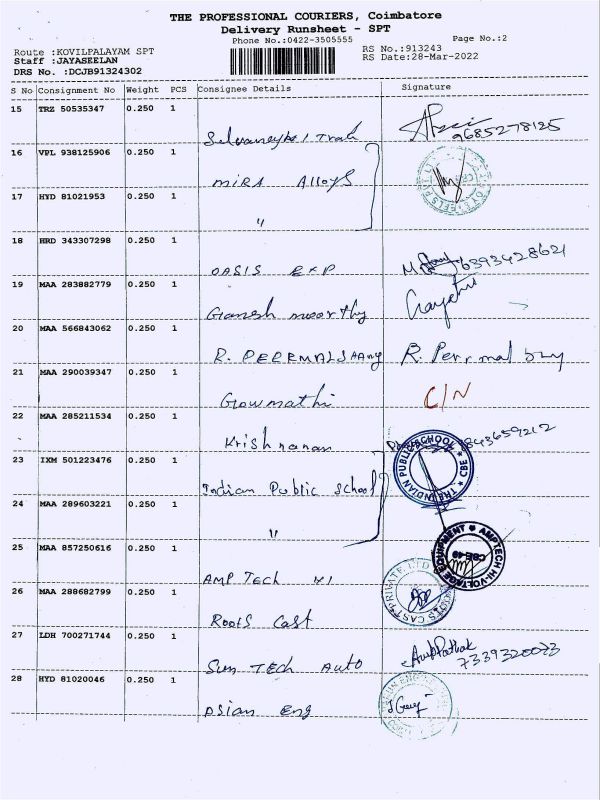 THE PROFESSIONAL COURIERS, Coimbatore
Delivery Runsheet - SPT
Phone No.:0422-3505555
Page No.:2
Route :KOVILPALAYAM SPT
RS No.:913243
Staff :JAYASEELAN
RS Date:28-Mar-2022
DRS No. :DCJB91324302
S No Consignment No Weight PCS Consignee Details Signature
15 TRZ 50535347 0.250 1
9685278125
16 VPL 938125906 0.250 1
MIRA Alloys
17 HYD 81021953 0.250 1
"
18 HRD 343307298 0.250 1
OASIS EXP 6393428621
19 MAA 283882779 0.250 1
Ganesh moorthy Gayathri
20 MAA 566843062 0.250 1
R. PERERMALSAAMY R. Perrmal
21 MAA 290039347 0.250 1
Gowmathi C/N
22 MAA 285211534 0.250 1
Krishnanan 9843659212
23 IXM 501223476 0.250 1
Indian Public School THE INDIAN PUBLIC SCHOOL ★ CBE ★
24 MAA 289603221 0.250 1
"
25 MAA 857250616 0.250 1
AMP Tech AMPTECH HI-VOLTAGE EQUIPMENT ★ CBE-49
26 MAA 288682799 0.250 1
Roots Cast ROOTS CAST PRIVATE LTD
27 LDH 700271744 0.250 1
Sun Tech Auto Pathak
7339320073
28 HYD 81020046 0.250 1
Asian Eng